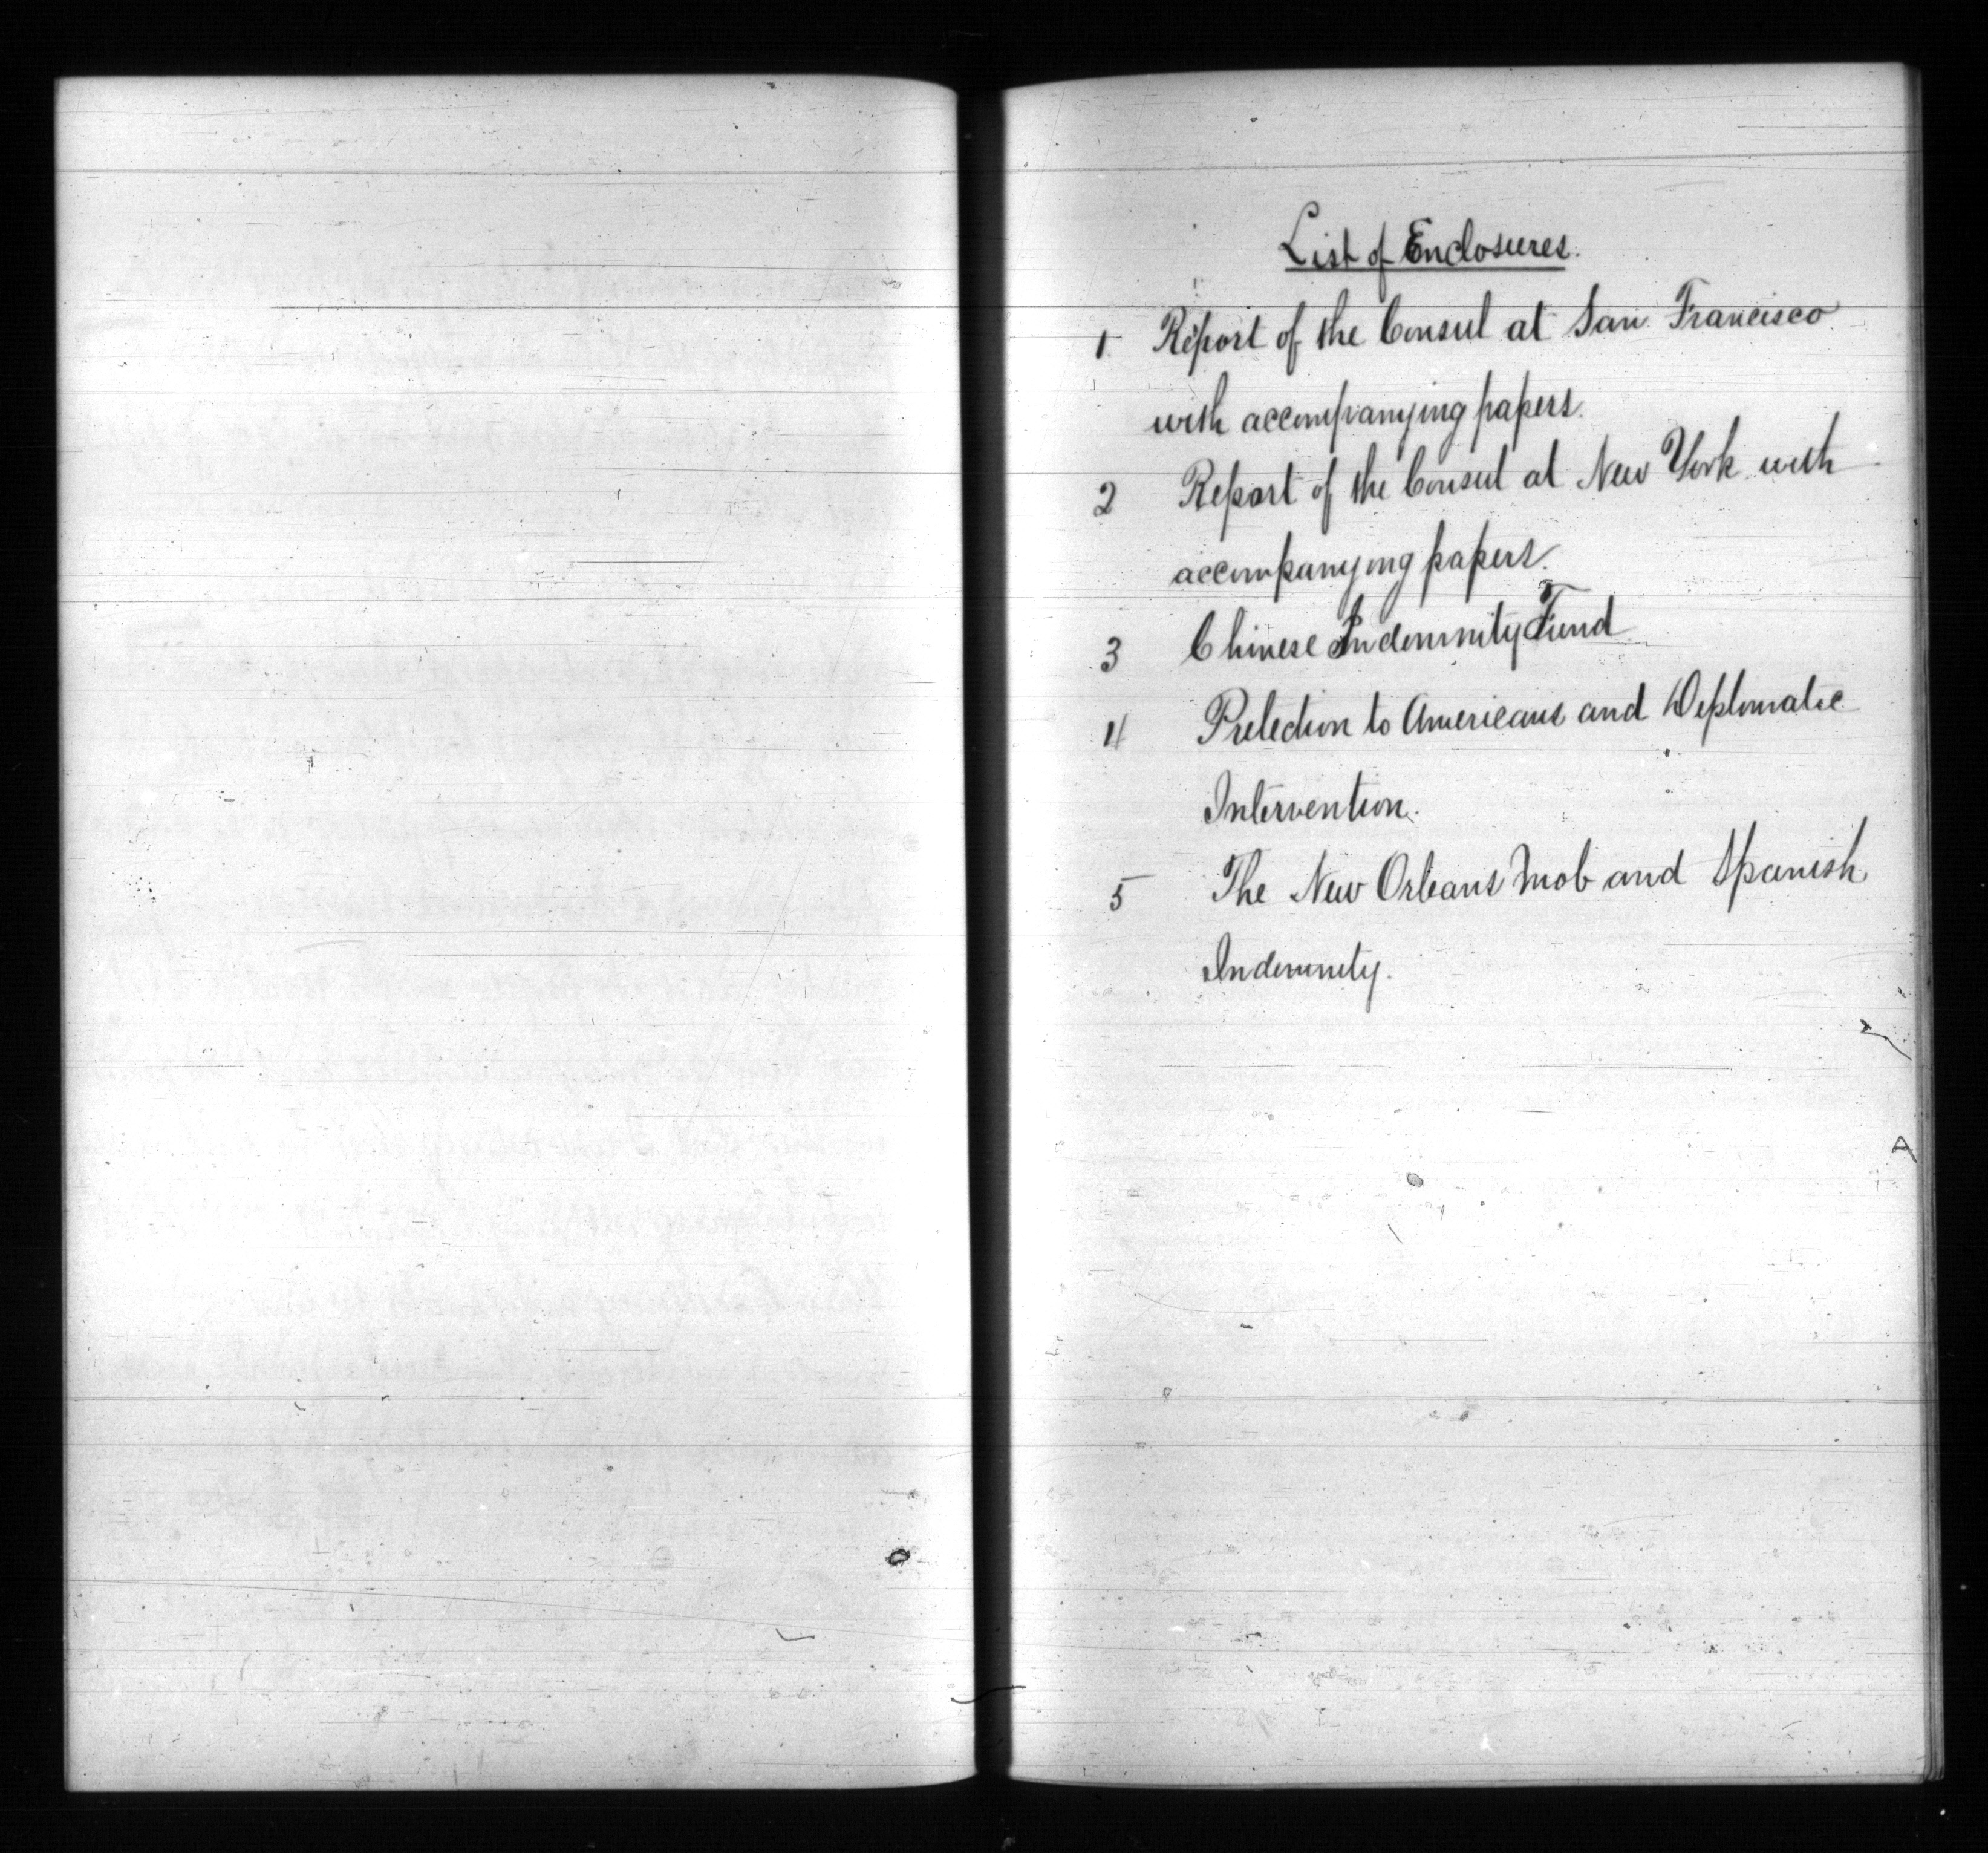 List of Enclosures.
1. Report of the Consul at San Francisco
with accompanying papers.
2 Report of the Consul at New York with
accompanying papers.
3 Chinese Indemnity Fund
4 Protection to Americans and Diplomatic
Intervention.
5 The New Orleans Mob and Spanish
Indemnity.